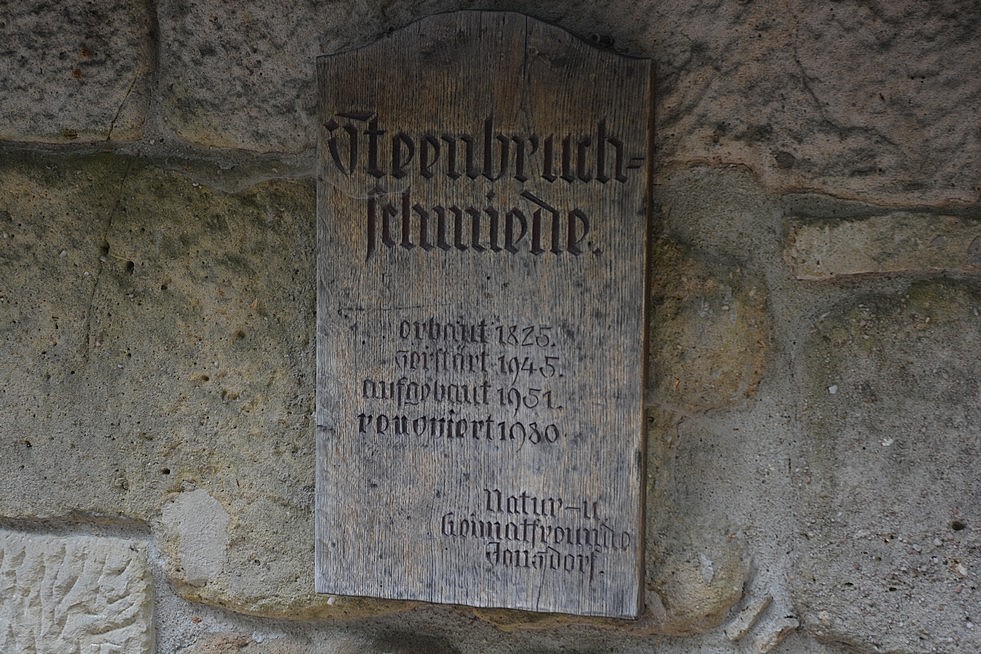 Steenbruch-
schmiede.
erbaut 1825.
zerstört 1945.
aufgebaut 1951.
renoviert 1980
Natur-u.
Heimatfreunde
Jonsdorf.